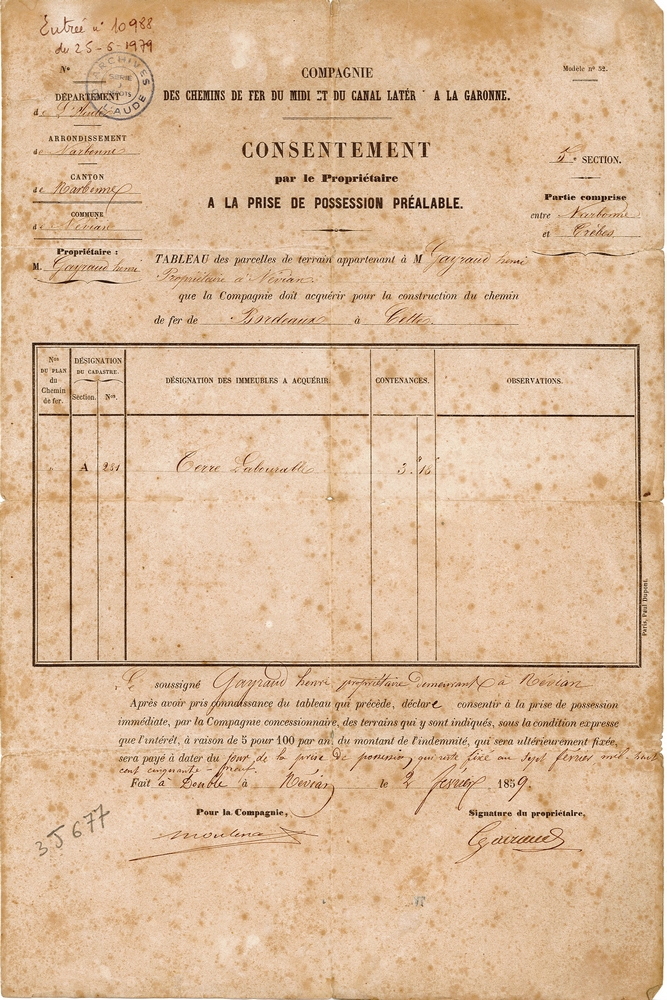 Entrée n° 10988
du 25-6-1979
N°
ARCHIVES
SERIE
AUDE
COMPAGNIE
DES CHEMINS DE FER DU MIDI ET DU CANAL LATÉR A LA GARONNE.
Modèle n° 52.
DÉPARTEMENT
de L'Aude
ARRONDISSEMENT
de Narbonne
CANTON
de Narbonne
COMMUNE
de Névian
Propriétaire :
M. Gayraud henri
CONSENTEMENT
par le Propriétaire
A LA PRISE DE POSSESSION PRÉALABLE.
5e SECTION.
Partie comprise
entre Narbonne
et Trèbes
TABLEAU des parcelles de terrain appartenant à M Gayraud henri
Propriétaire à Névian
que la Compagnie doit acquérir pour la construction du chemin
de fer de Bordeaux à Cette.
Nos DU PLAN du Chemin de fer.
DÉSIGNATION DU CADASTRE.
Section. Nos.
DÉSIGNATION DES IMMEUBLES A ACQUÉRIR.
CONTENANCES.
OBSERVATIONS.
" A 251 Terre Labourable 3. a 18
Paris, Paul Dupont.
Je soussigné Gayraud henri propriétaire demeurant à Névian
Après avoir pris connaissance du tableau qui précède, déclare consentir à la prise de possession
immédiate, par la Compagnie concessionnaire, des terrains qui y sont indiqués, sous la condition expresse
que l'intérêt, à raison de 5 pour 100 par an, du montant de l'indemnité, qui sera ultérieurement fixée,
sera payé à dater du jour de la prise de possession, qui reste fixé au Sept février mil huit
cent cinquante-neuf.
Fait à Double à Névian le 2 février 1859.
Pour la Compagnie,
Signature du propriétaire,
moulena
Gairaud
3J677